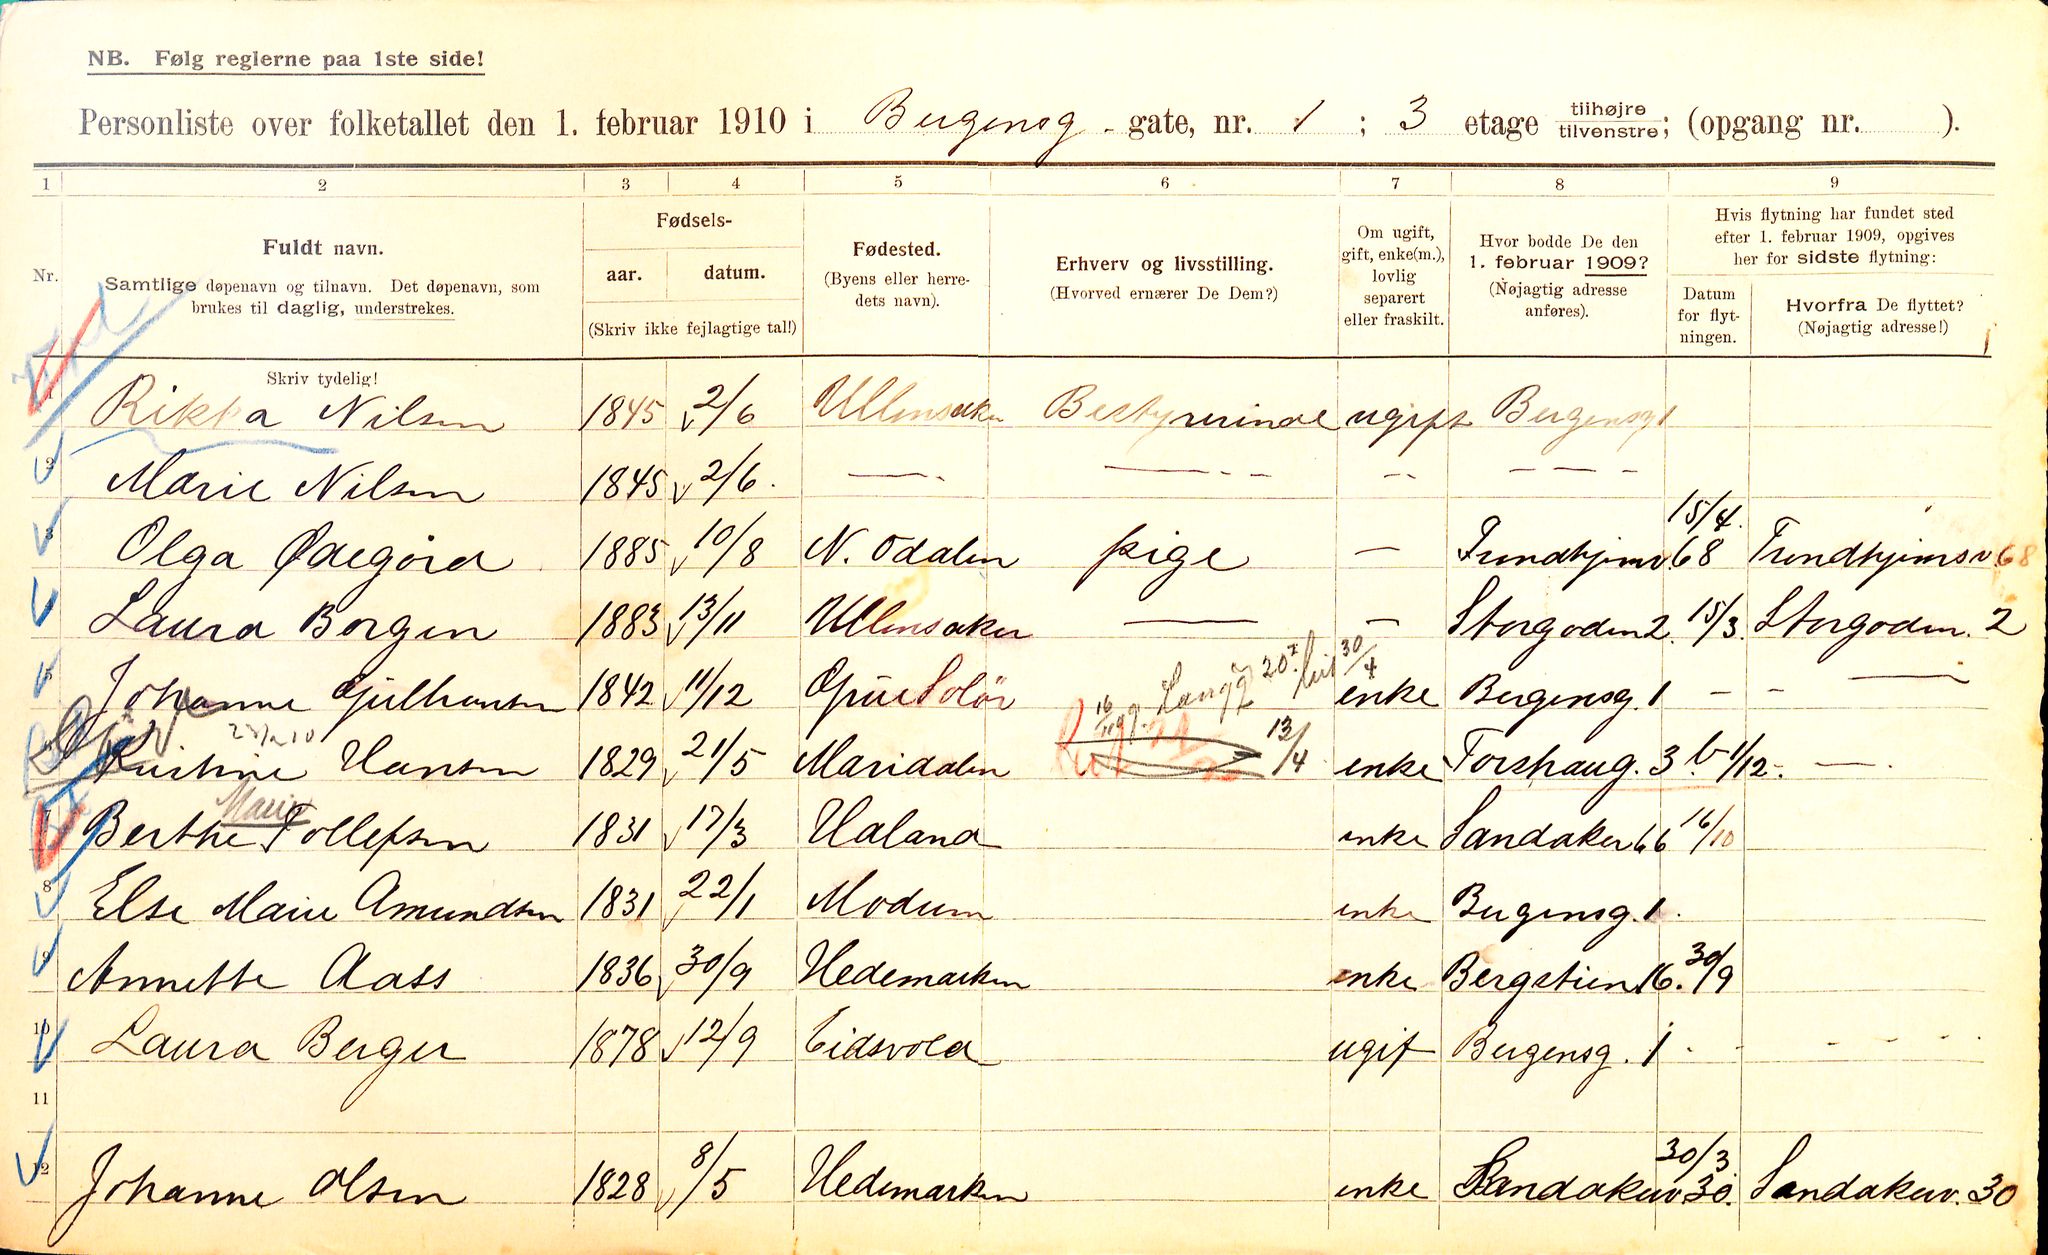 NB. Følg reglerne paa 1ste side!
Personliste over folketallet den 1. februar 1910 i Bergensg. gate, nr. 1 ; 3 etage tilhøjre/tilvenstre; (opgang nr. ).
1 2 3 4 5 6 7 8 9
Nr.
Fuldt navn.
Samtlige døpenavn og tilnavn. Det døpenavn, som
brukes til daglig, understrekes.
Fødsels-
aar. datum.
(Skriv ikke fejlagtige tal!)
Fødested.
(Byens eller herre-
dets navn).
Erhverv og livsstilling.
(Hvorved ernærer De Dem?)
Om ugift,
gift, enke(m.),
lovlig
separert
eller fraskilt.
Hvor bodde De den
1. februar 1909?
(Nøjagtig adresse
anføres).
Hvis flytning har fundet sted
efter 1. februar 1909, opgives
her for sidste flytning:
Datum
for flyt-
ningen.
Hvorfra De flyttet?
(Nøjagtig adresse!)
Skriv tydelig!
1 Rikka Nilsen 1845 2/6 Ullensaker Bestyrerinde ugift Bergensg 1
2 Marie Nilsen 1845 2/6. — — - - - - — - -
3 Olga Ødegård 1885 10/8 N. Odalen pige — Trondhjemsv. 68 15/4. Trondhjemsv. 68
4 Laura Borgen 1883 13/11 Ullensaker — — Storgaden 2. 15/3. Storgaden. 2
5 Johanne Gulhansen 1842 11/12 Solør enke Bergensg. 1 - - —
20 30/4
16
6 Kristine Hansen 1829 21/5 Maridalen 13/4 enke Torshaug. 3 b 1/12. —
Marie
7 Berthe Tollefsen 1831 17/3 Haland enke Sandaker 66 16/10
8 Else Marie Amundsen 1831 22/1 Modum enke Bergensg. 1.
9 Annette Aass 1836 30/9 Hedemarken enke Bergstien 16. 30/9
10 Laura Berger 1878 12/9 Eidsvold ugif Bergensg. 1 - - - - - -
11
12 Johanne Olsen 1828 8/5 Hedemarken enke Sandakerv. 30. 30/3. Sandakerv. 30